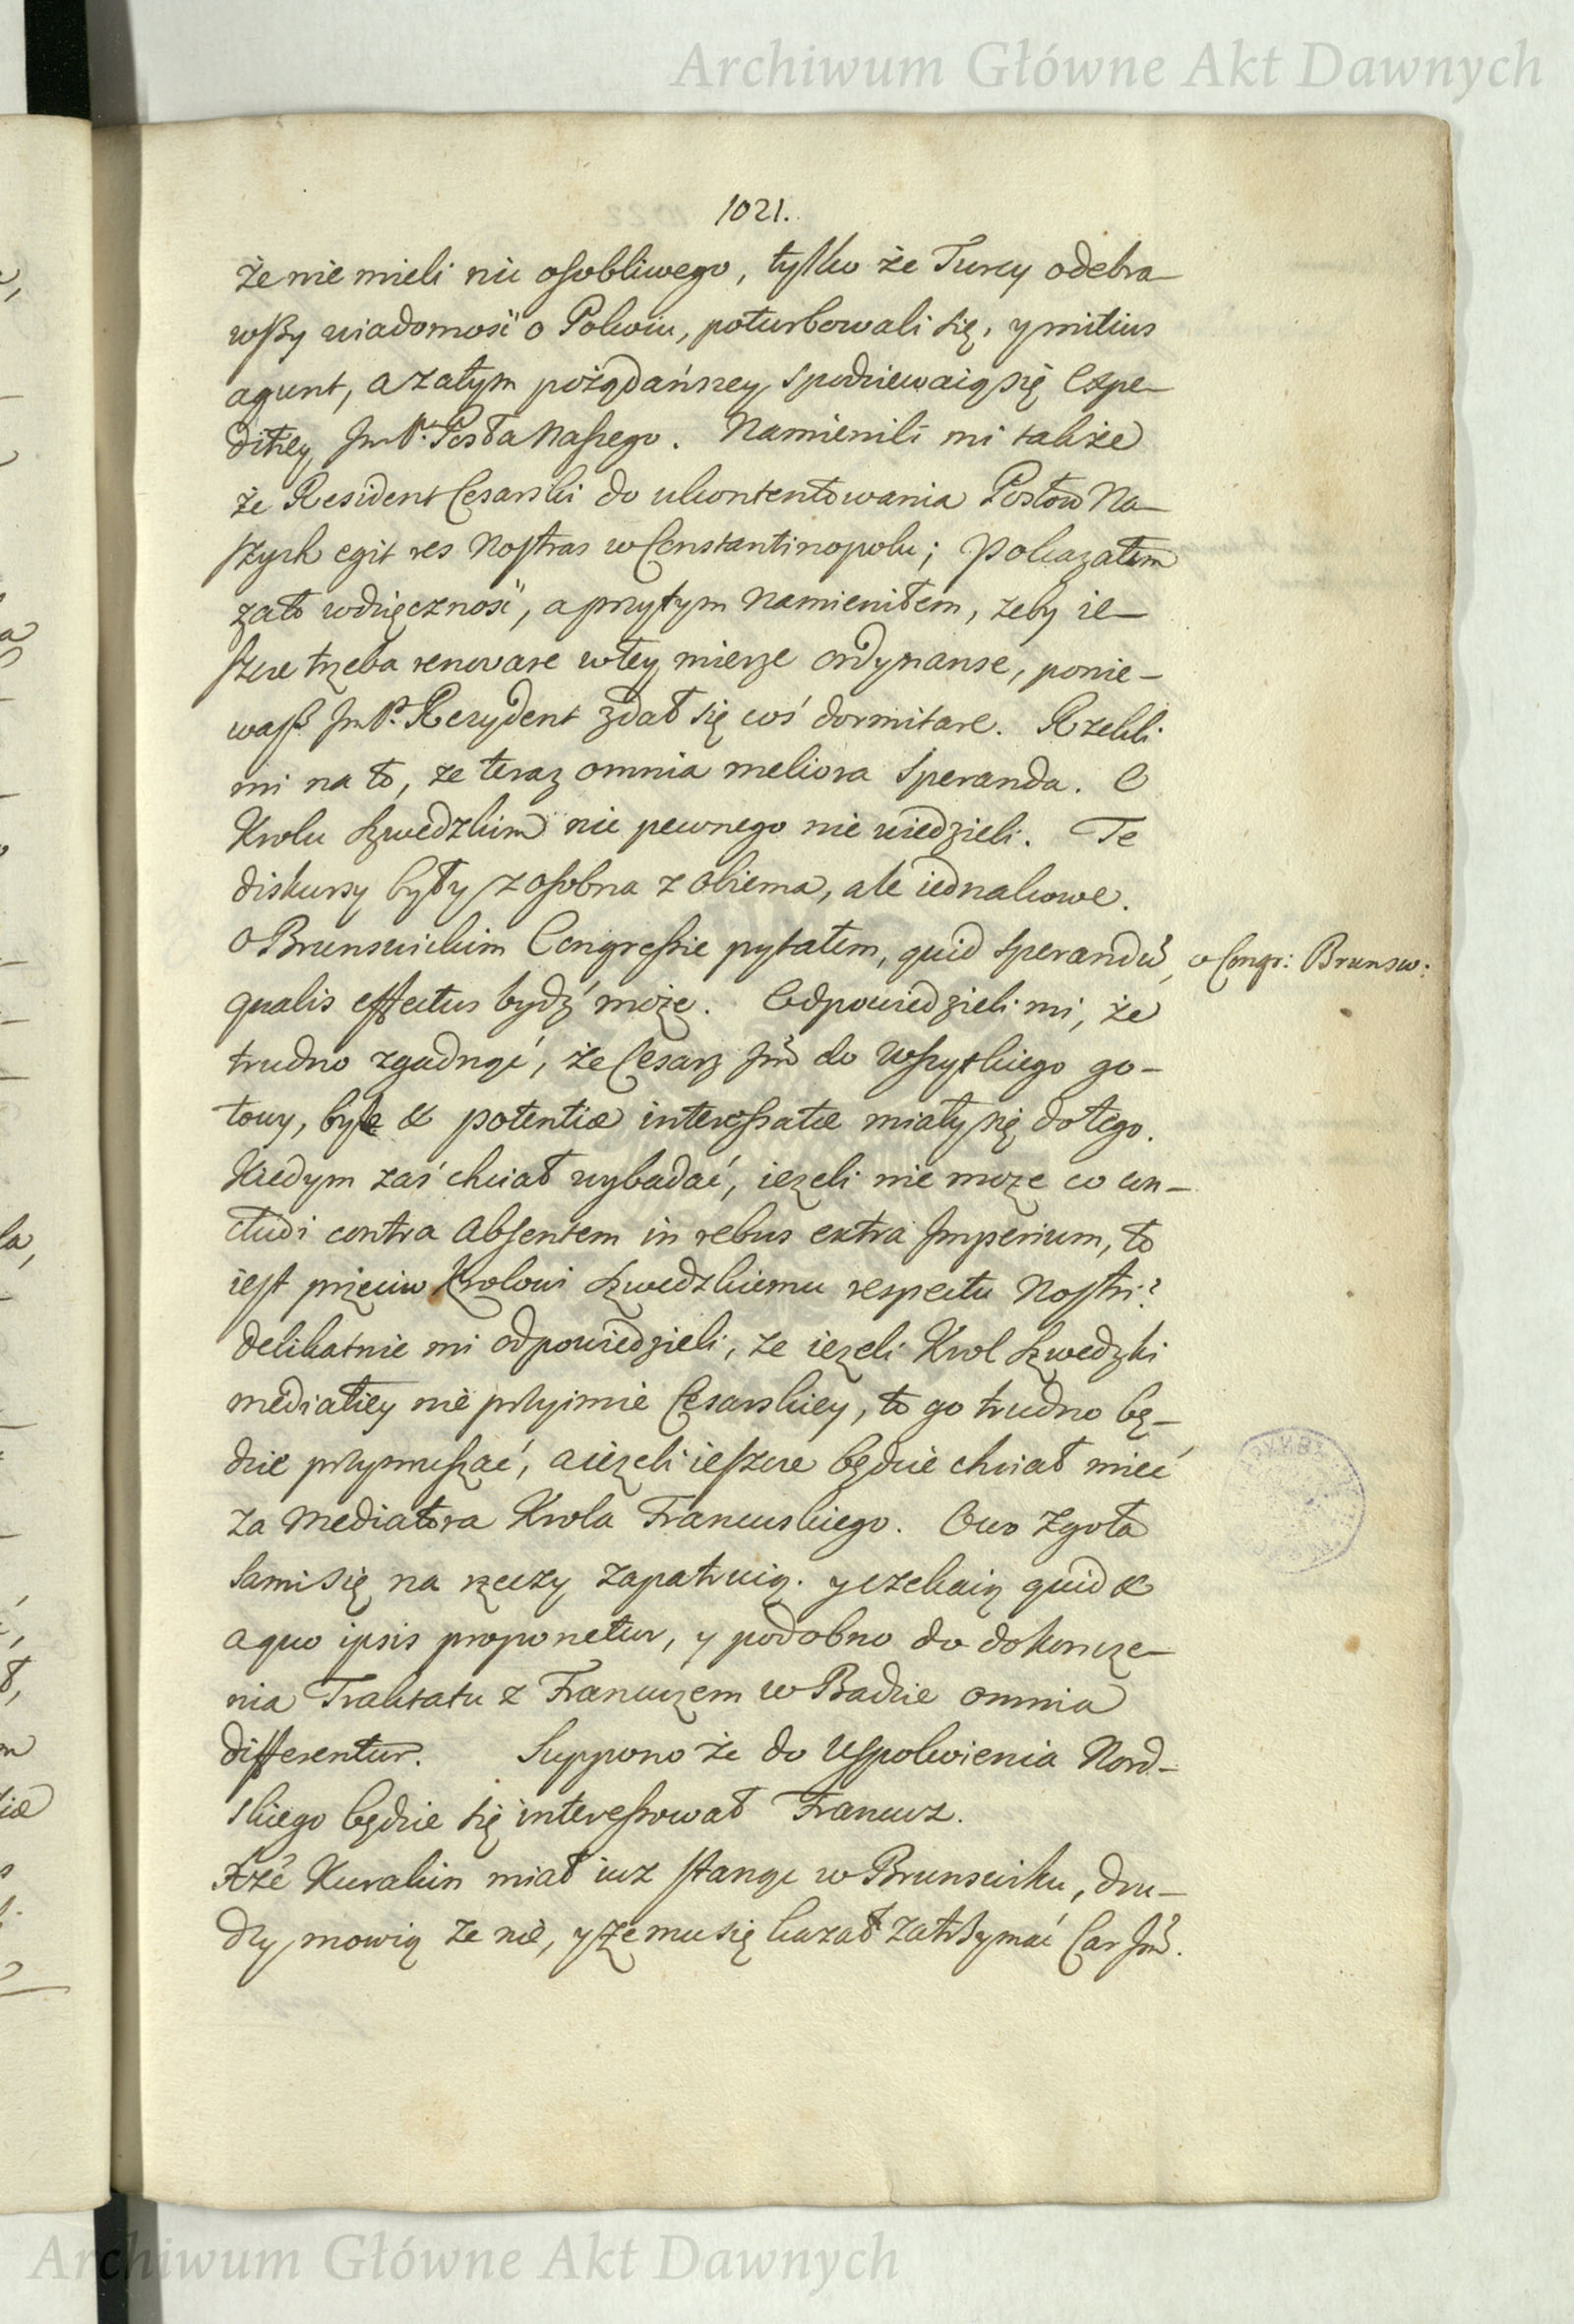 Archiwum Główne Akt Dawnych
1021.
że nie mieli nic osobliwego, tylko że Turcy odebra-
wszy wiadomość o Pokoiu, poturbowali się, y mitius
agunt, a zatym pożądańszey spodziewaią się Expe-
ditiey Jm Pa. Posła Naszego. Namienili mi także
że Resident Cesarski do ukontentowania Posłow Na-
szych egit res Nostras w Constantinopolu; Pokazałem
zato wdzięczność, a przytym namieniłem, żeby ie-
szcze trzeba renovare w tey mierze ordynanse, ponie-
wasz Jm P. Rezydent zdał się coś dormitare. Rzekli
mi na to, że teraz omnia meliora speranda. O
Krolu Szwedzkim nic pewnego nie wiedzieli. Te
diskursy były z osobna z obiema, ale iednakowe.
O Brunswickim Congressie pytałem, quid sperandũ, o Congr: Brunsw:
qualis effectus bydź może. Odpowiedzieli mi, że
trudno zgadnąć, że Cesarz Jm̃ do wszytkiego go-
towy, byle & potentiæ interessatæ miały się do tego.
Kiedym zaś chciał wybadać, ieżeli nie może co con-
cludi contra Absentem in rebus extra Imperium, to
iest przeciw Krolowi Szwedzkiemu respectu Nostri?
delikatnie mi odpowiedzieli, że ieżeli Krol Szwedzki
mediatiey nie przyimie Cesarskiey, to go trudno bę-
dzie przymuszać, a ieżeli ieszcze będzie chciał mieć
za Mediatora Krola Francuskiego. Owo zgoła
sami się na rzeczy zapatruią. y czekaią quid &
a quo ipsis proponetur, y podobno do dokoncze-
nia Traktatu z Francuzem w Badzie omnia
differentur. Suppono że do Uspokoienia Nord-
skiego będzie się interessował Francuz.
Xżę Kurakin miał iuz stanąć w Brunswiku, dru-
dzy mowią że nie, y że mu się kazał zatrzymać Car Jm̃.
Archiwum Główne Akt Dawnych